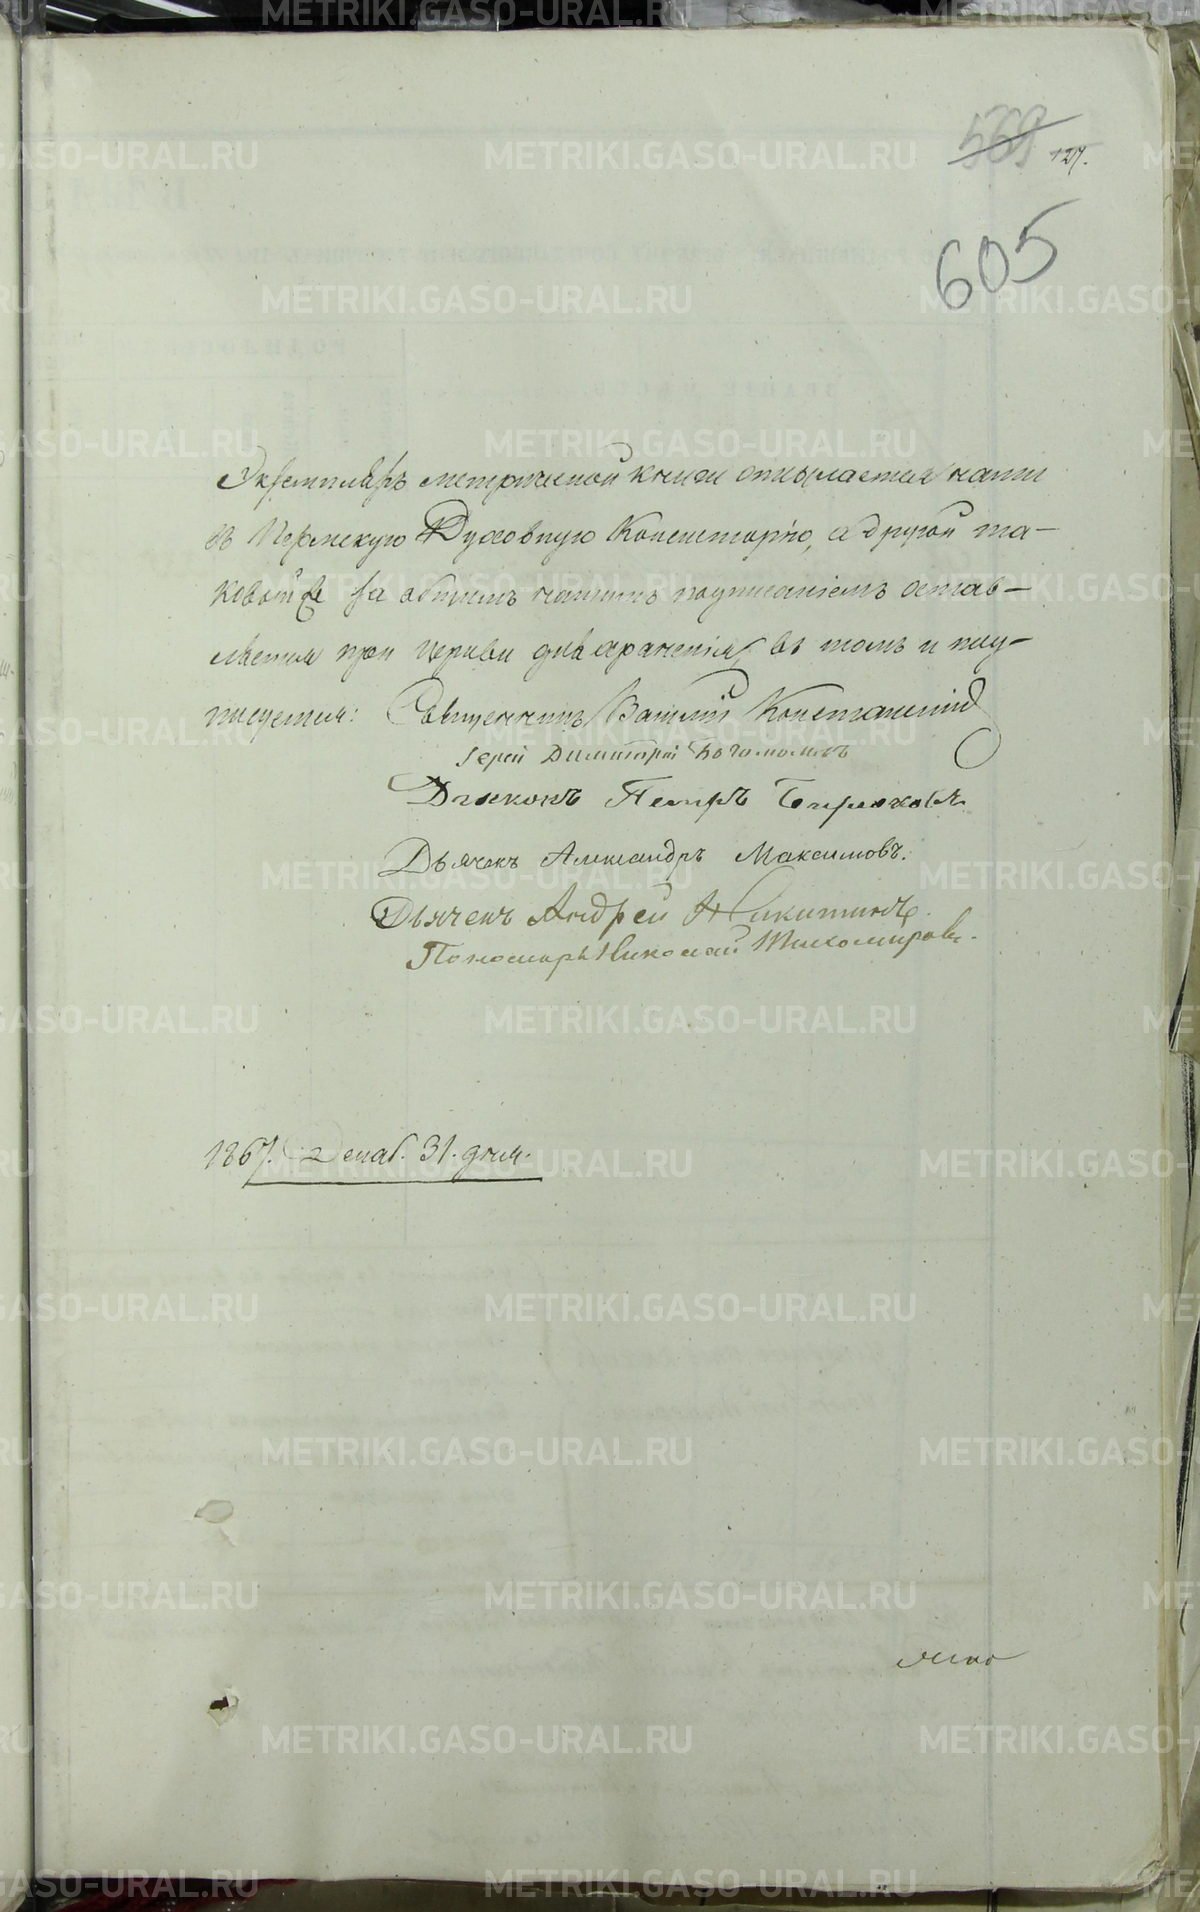 569 127.
605
Экземпляръ метрической книги отсылается нами
въ Пермскую Духовную Консисторію, а другой та-
ковой же за общимъ нашимъ подписаніемъ остав-
ляется при церкви для храненія, въ томъ и под-
писуемся: Священникъ Василій Констанскій
Іерей Димитрій Богомоловъ
Діаконъ Петръ Бирюковъ
Дьячекъ Александръ Максимовъ.
Дьячекъ Андрей Никитинъ.
Пономарь Николай Тихомировъ.
1867. Декаб. 31. дня.